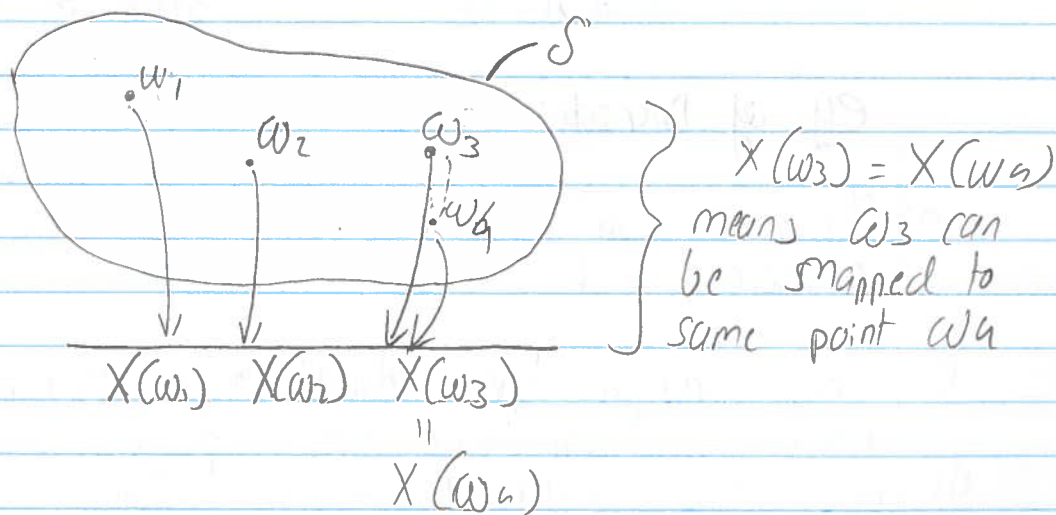 S
ω1
ω2
ω3
ω4
X(ω1) X(ω2) X(ω3)
=
X(ω4)
X(ω3) = X(ω4)
means ω3 can
be mapped to
same point ω4